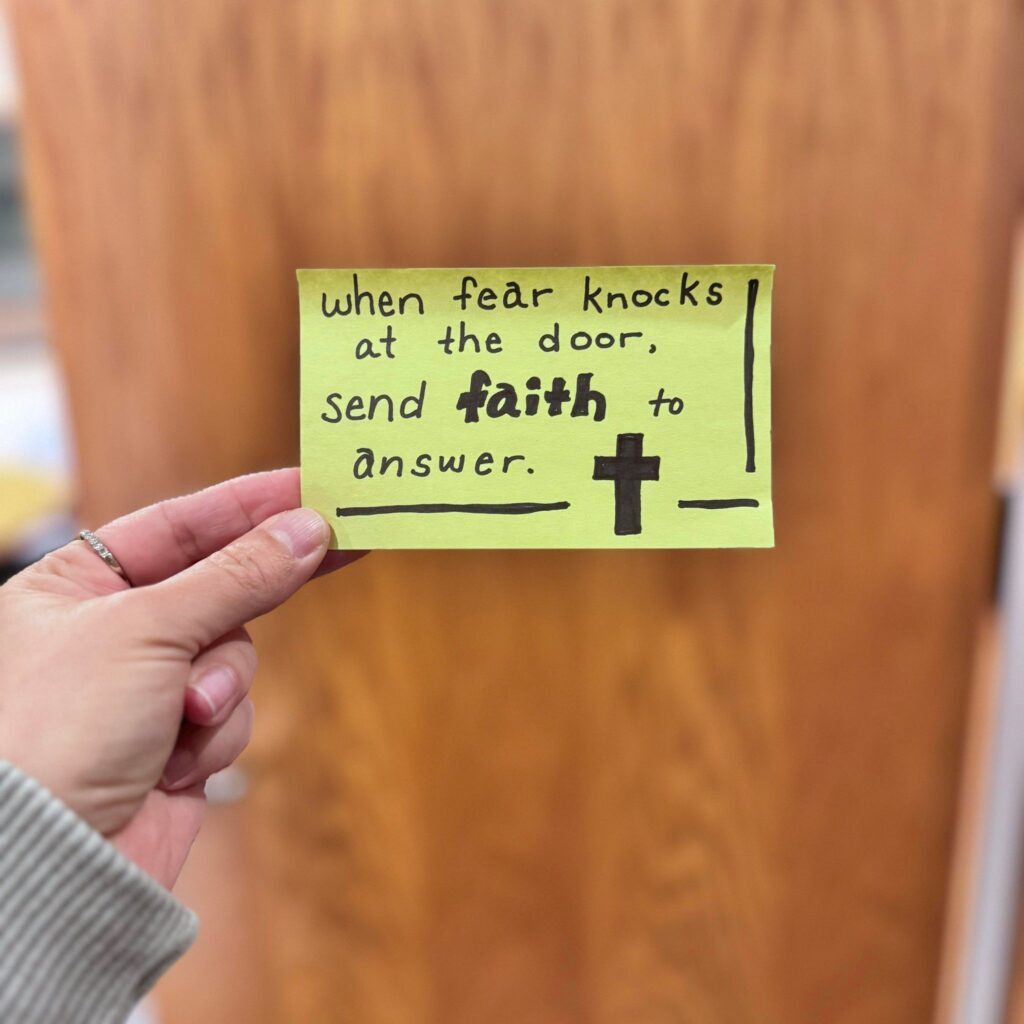 when fear knocks
at the door,
send faith to
answer.